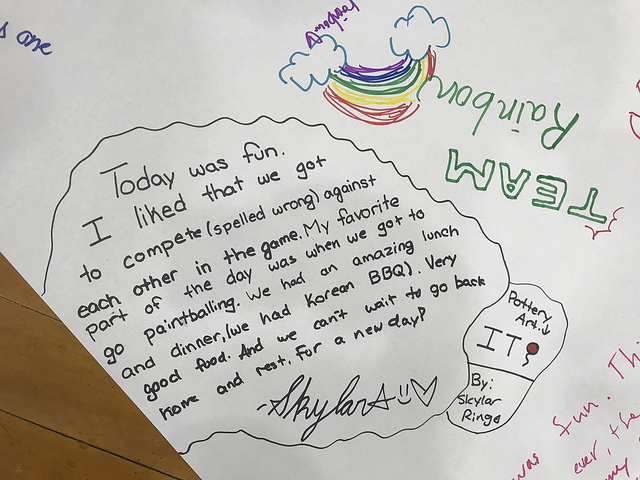 s one
Rainbow
TEAM
Today was fun.
I liked that we got
to compete (spelled wrong) against
each other in the game. My favorite
part of the day was when we got to
go paintballing. We had an amazing lunch
and dinner, (we had Korean BBQ). Very
good food. And we can't wait to go back
home and rest. For a new day!
-Skylar
Pottery
Art.↓
IT
By:
Skylar
Ringo
was fun. Thi
ever, the